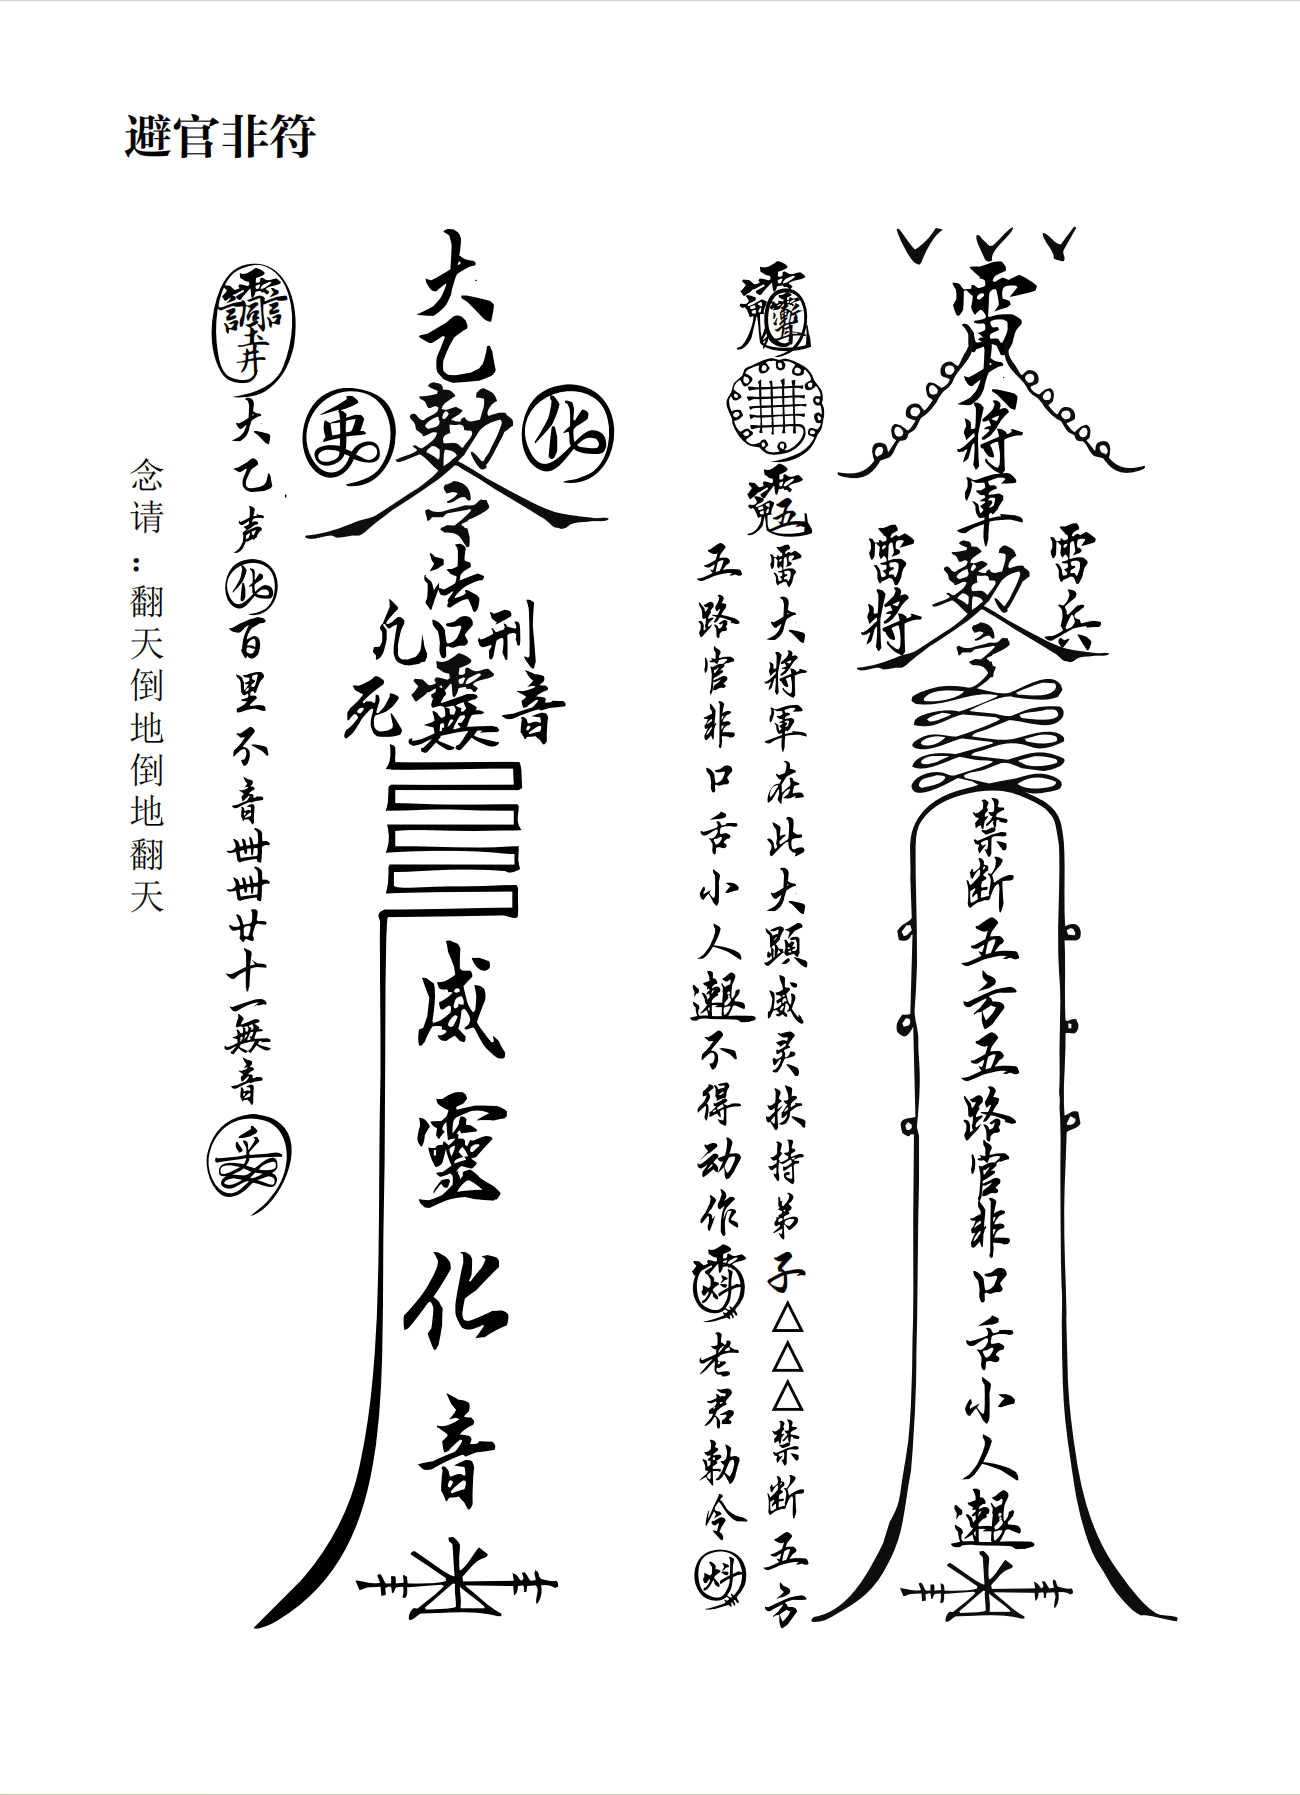 避官非符
雷大將軍勅令
雷將
雷兵
禁断五方五路官非口舌小人
雷大將軍在此大顯威灵扶持弟子△△△禁断五方
五路官非口舌小人
不得动作
老君勅令
大乙勅令法口
化
刑
死
音
威靈化音
大乙声化百里不音卌卌廿十一無音
念请:翻天倒地倒地翻天